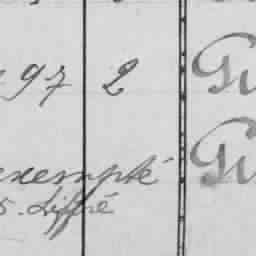 97 2 Gu
exempté Gu
s. Liffré